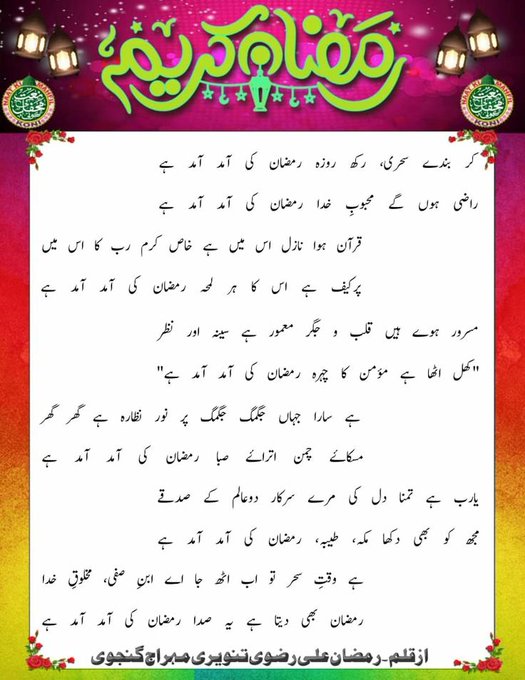 رمضان کریم
NAAT KI MEHFIL
نعت کی محفل
KONI
NAAT KI MEHFIL
نعت کی محفل
KONI
کر بندے سحری، رکھ روزہ رمضان کی آمد آمد ہے
راضی ہوں گے محبوبِ خدا رمضان کی آمد آمد ہے
قرآن ہوا نازل اس میں ہے خاص کرم رب کا اس میں
پرکیف ہے اس کا ہر لمحہ رمضان کی آمد آمد ہے
مسرور ہوے ہیں قلب و جگر معمور ہے سینہ اور نظر
"کھل اٹھا ہے مؤمن کا چہرہ رمضان کی آمد آمد ہے"
ہے سارا جہاں جگمگ جگمگ پر نور نظارہ ہے گھر گھر
مسکائے چمن اترائے صبا رمضان کی آمد آمد ہے
یارب ہے تمنا دل کی مرے سرکار دوعالم کے صدقے
مجھ کو بھی دکھا مکہ، طیبہ، رمضان کی آمد آمد ہے
ہے وقتِ سحر تو اب اٹھ جا اے ابنِ صفی، مخلوقِ خدا
رمضان بھی دیتا ہے یہ صدا رمضان کی آمد آمد ہے
ازقلم۔رمضان علی رضوی تنویری مہراج گنجوی